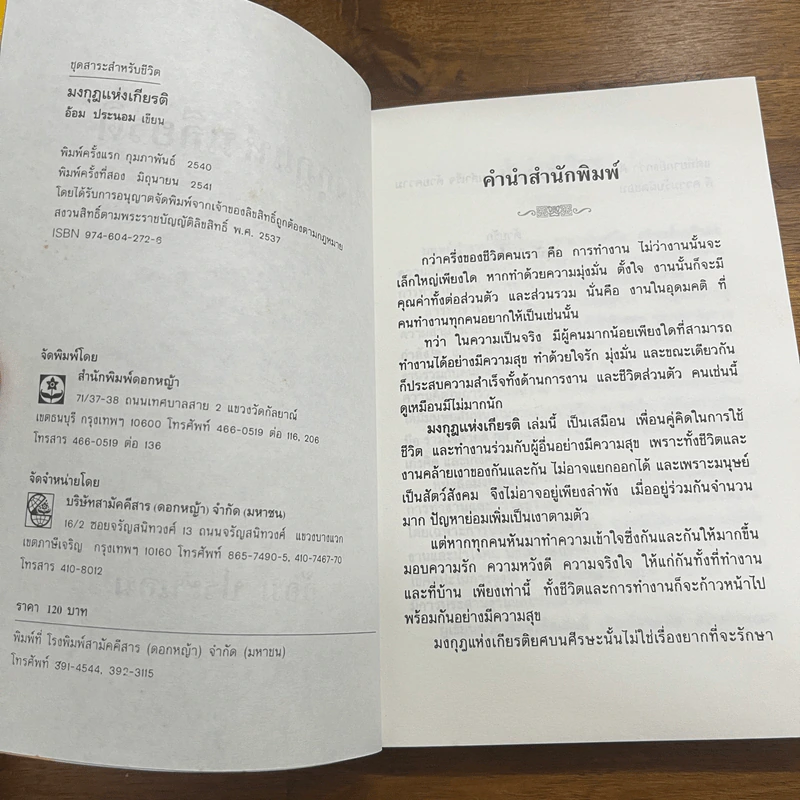 ชุดสาระสำหรับชีวิต
มงกุฎแห่งเกียรติ
อ้อม ประนอม เขียน
พิมพ์ครั้งแรก กุมภาพันธ์ 2540
พิมพ์ครั้งที่สอง มิถุนายน 2541
โดยได้รับการอนุญาตจัดพิมพ์จากเจ้าของลิขสิทธิ์ถูกต้องตามกฎหมาย
สงวนสิทธิ์ตามพระราชบัญญัติลิขสิทธิ์ พ.ศ. 2537
ISBN 974-604-272-6
จัดพิมพ์โดย
สำนักพิมพ์ดอกหญ้า
71/37-38 ถนนเทศบาลสาย 2 แขวงวัดกัลยาณ์
เขตธนบุรี กรุงเทพฯ 10600 โทรศัพท์ 466-0519 ต่อ 116, 206
โทรสาร 466-0519 ต่อ 136
จัดจำหน่ายโดย
บริษัทสามัคคีสาร (ดอกหญ้า) จำกัด (มหาชน)
16/2 ซอยจรัญสนิทวงศ์ 13 ถนนจรัญสนิทวงศ์ แขวงบางแวก
เขตภาษีเจริญ กรุงเทพฯ 10160 โทรศัพท์ 865-7490-5, 410-7467-70
โทรสาร 410-8012
ราคา 120 บาท
พิมพ์ที่ โรงพิมพ์สามัคคีสาร (ดอกหญ้า) จำกัด (มหาชน)
โทรศัพท์ 391-4544, 392-3115
คำนำสำนักพิมพ์
กว่าครึ่งของชีวิตคนเรา คือ การทำงาน ไม่ว่างานนั้นจะ
เล็กใหญ่เพียงใด หากทำด้วยความมุ่งมั่น ตั้งใจ งานนั้นก็จะมี
คุณค่าทั้งต่อส่วนตัว และส่วนรวม นั่นคือ งานในอุดมคติ ที่
คนทำงานทุกคนอยากให้เป็นเช่นนั้น
ทว่า ในความเป็นจริง มีผู้คนมากน้อยเพียงใดที่สามารถ
ทำงานได้อย่างมีความสุข ทำด้วยใจรัก มุ่งมั่น และขณะเดียวกัน
ก็ประสบความสำเร็จทั้งด้านการงาน และชีวิตส่วนตัว คนเช่นนี้
ดูเหมือนมีไม่มากนัก
มงกุฎแห่งเกียรติ เล่มนี้ เป็นเสมือน เพื่อนคู่คิดในการใช้
ชีวิต และทำงานร่วมกับผู้อื่นอย่างมีความสุข เพราะทั้งชีวิตและ
งานคล้ายเงาของกันและกัน ไม่อาจแยกออกได้ และเพราะมนุษย์
เป็นสัตว์สังคม จึงไม่อาจอยู่เพียงลำพัง เมื่ออยู่ร่วมกันจำนวน
มาก ปัญหาย่อมเพิ่มเป็นเงาตามตัว
แต่หากทุกคนหันมาทำความเข้าใจซึ่งกันและกันให้มากขึ้น
มอบความรัก ความหวังดี ความจริงใจ ให้แก่กันทั้งที่ทำงาน
และที่บ้าน เพียงเท่านี้ ทั้งชีวิตและการทำงานก็จะก้าวหน้าไป
พร้อมกันอย่างมีความสุข
มงกุฎแห่งเกียรติยศบนศีรษะนั้นไม่ใช่เรื่องยากที่จะรักษา